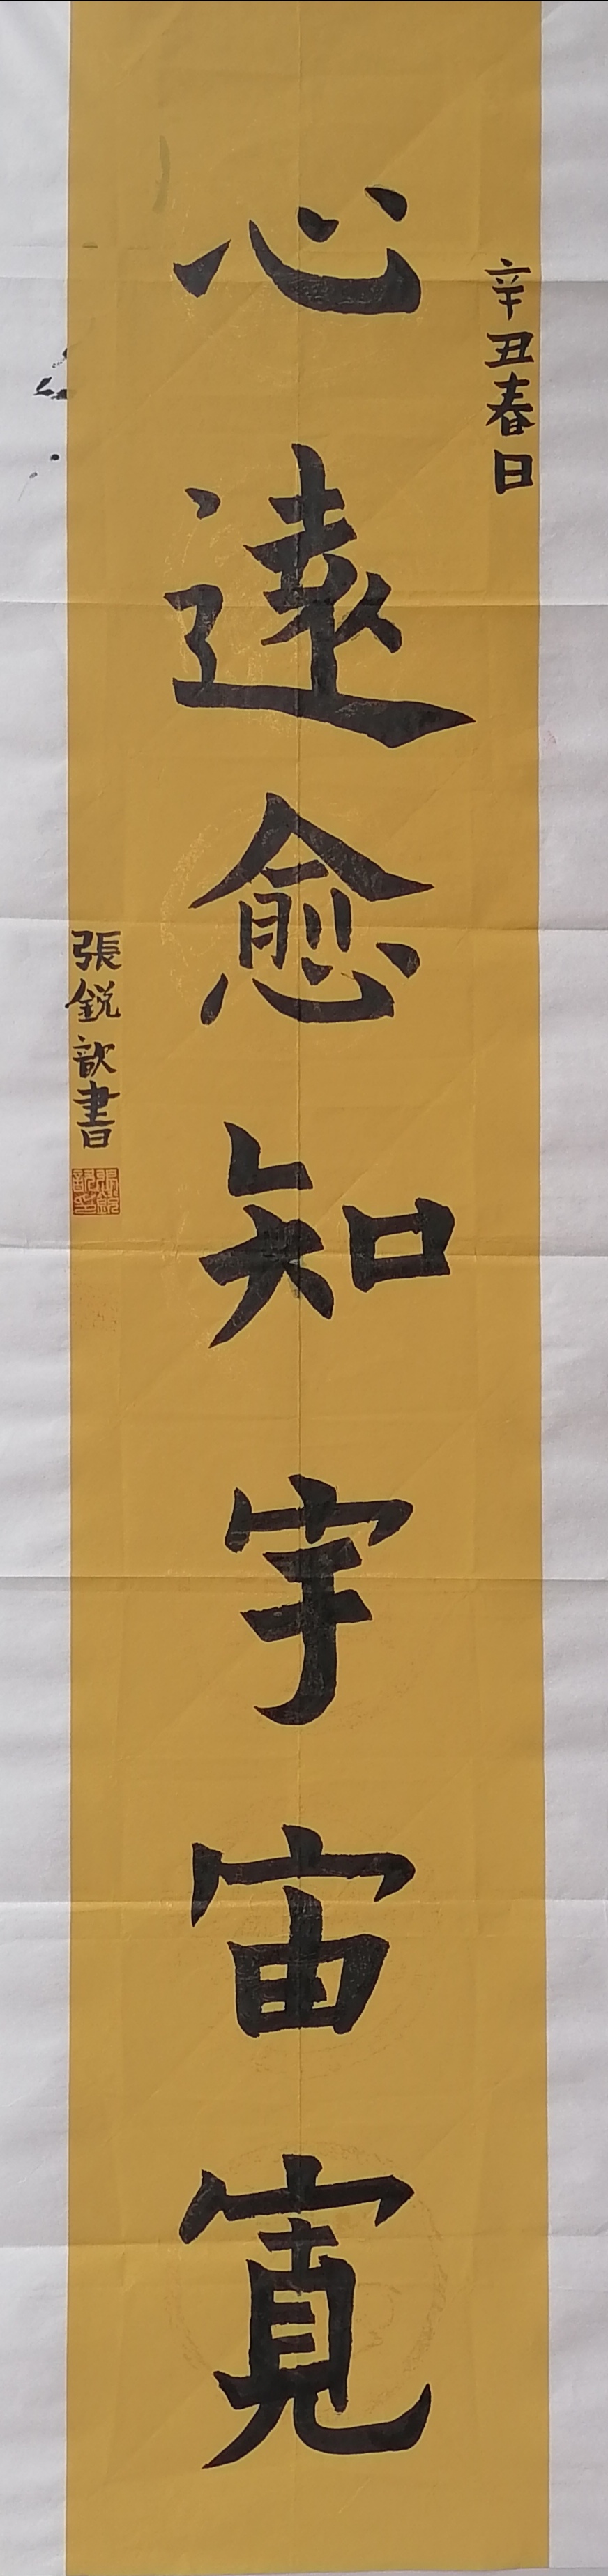 辛丑春日
心遠愈知宇宙寬
張銳歆書